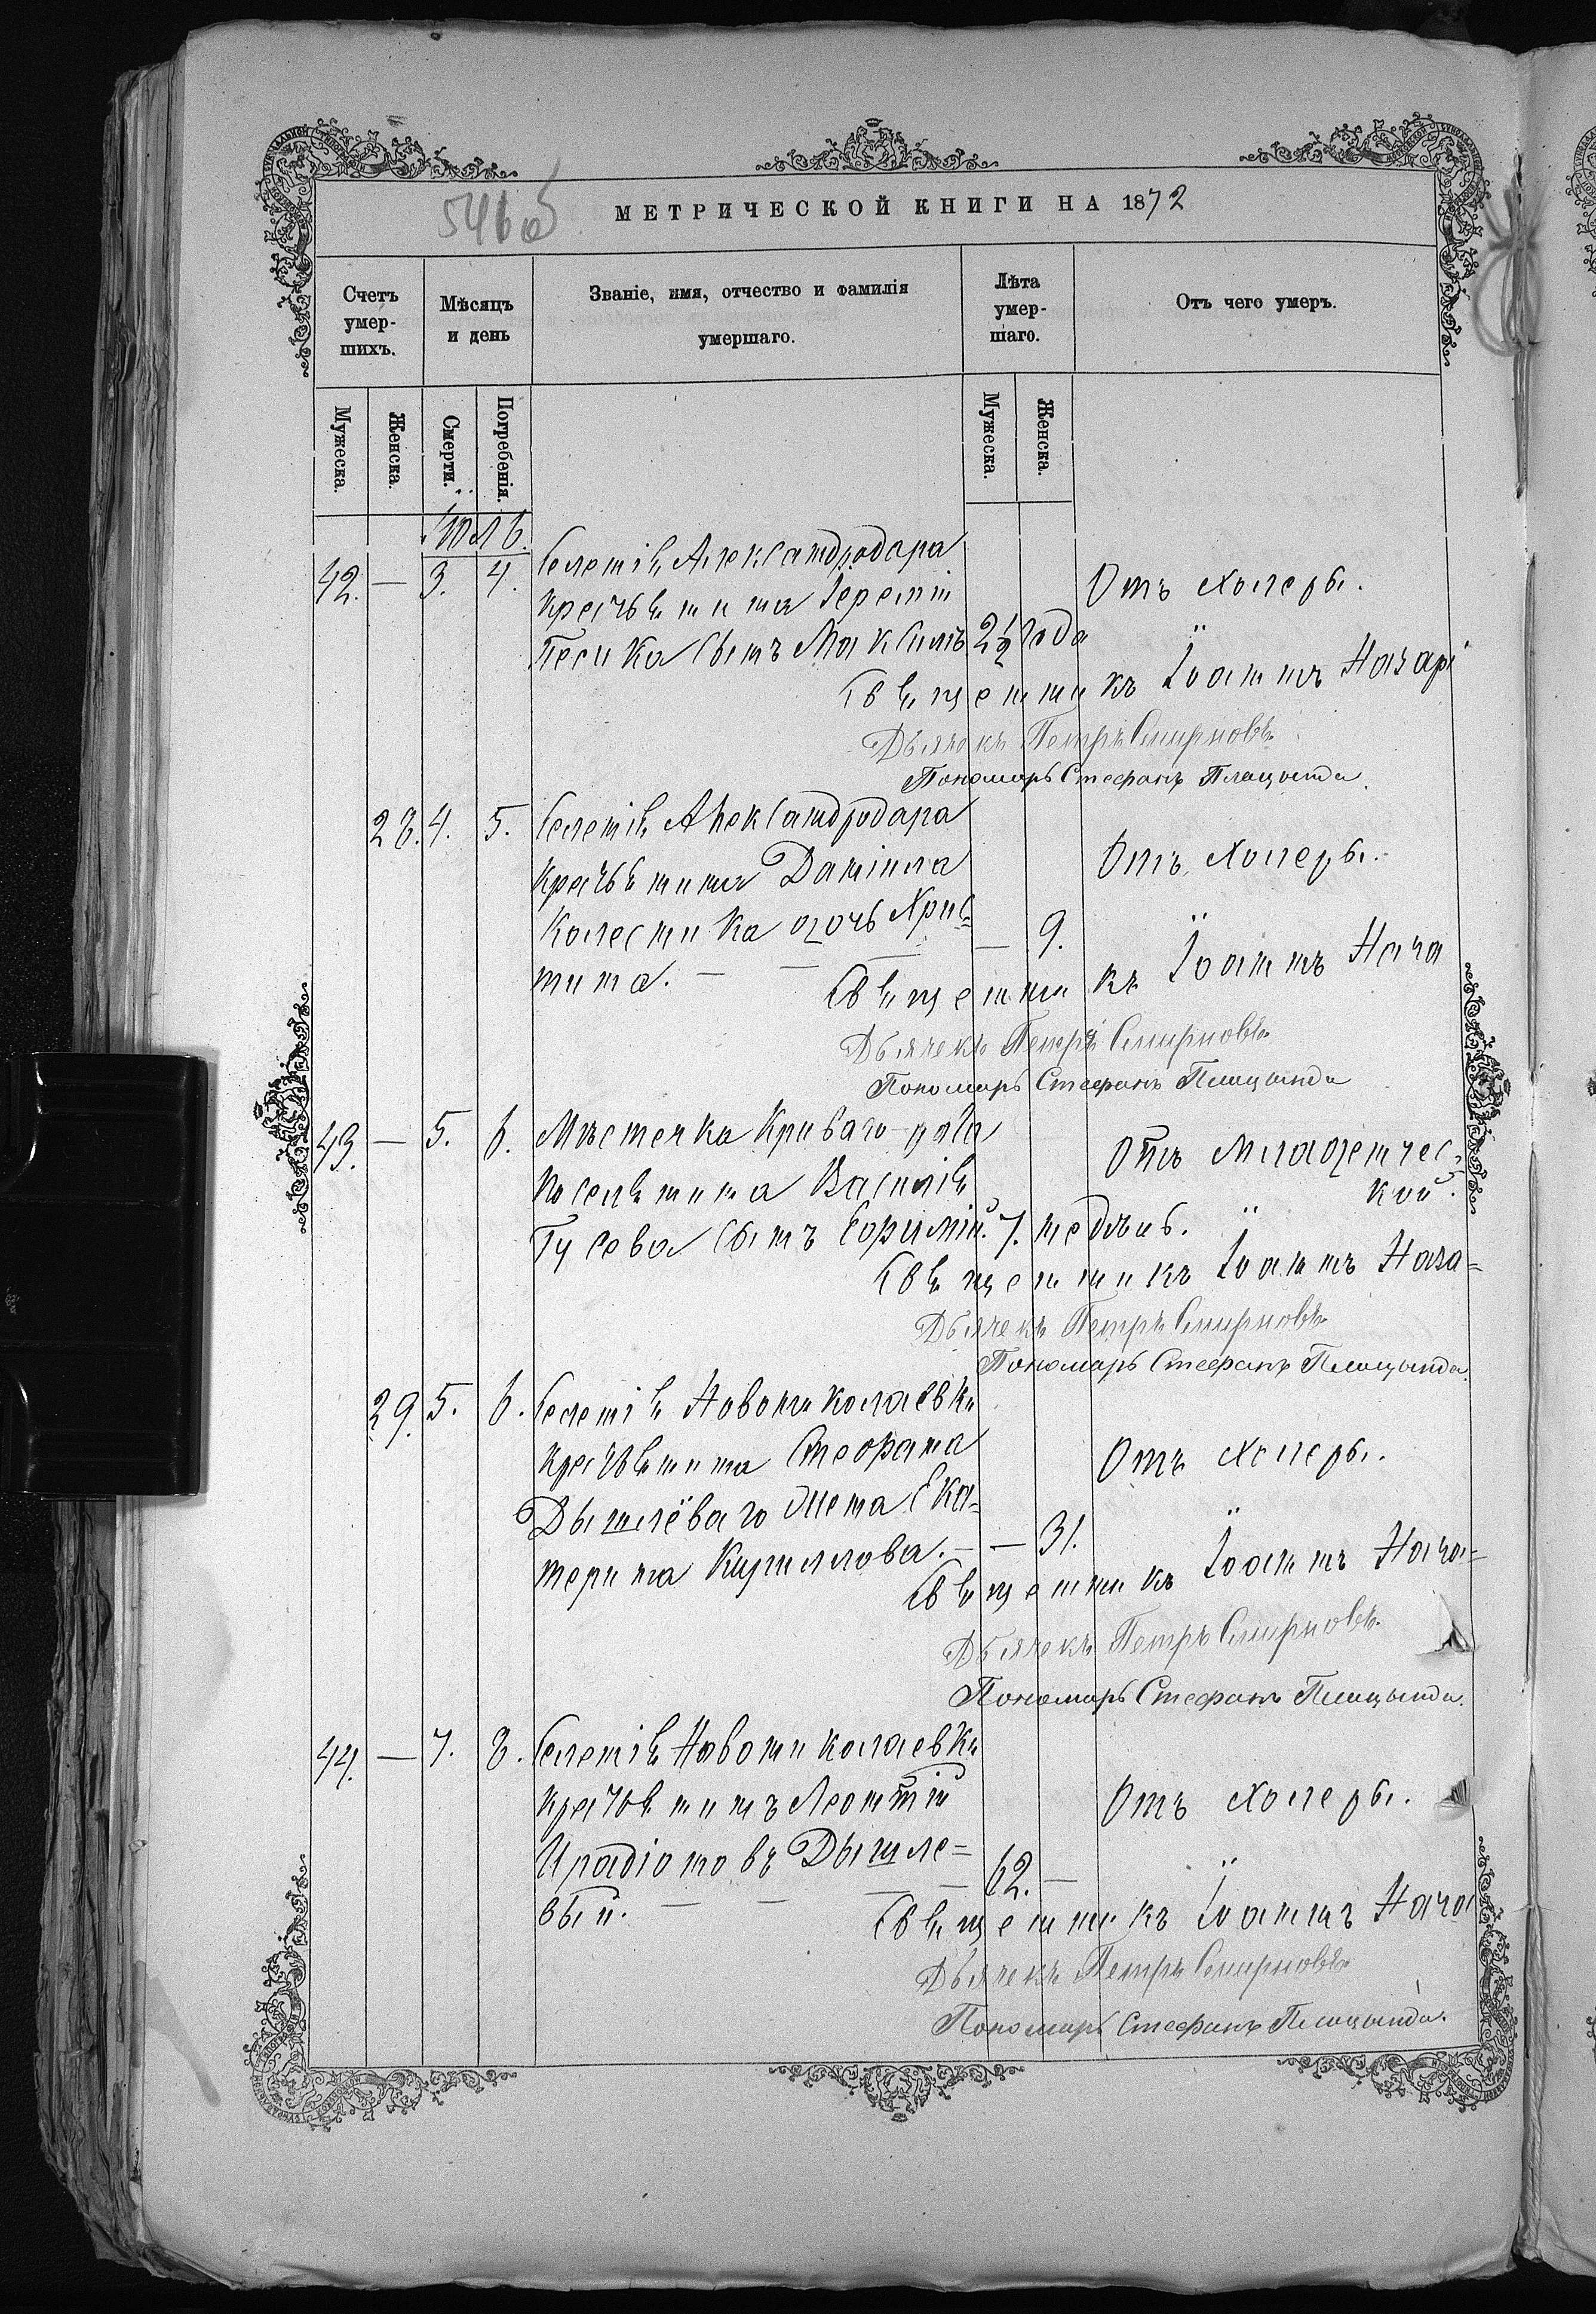 546об
МЕТРИЧЕСКОЙ КНИГИ НА 1872
Счетъ умер-шихъ.
Мѣсяцъ и день
Званіе, имя, отчество и фамилія умершаго.
Лѣта умер-шаго.
Отъ чего умеръ.
Мужеска.
Женска.
Смерти.
Погребенія.
Мужеска.
Женска.
Іюль.
42. — 3. 4. Селенія Александродара
крестьянина Іеремій Отъ холеры.
Песика сынъ Максимъ 2½ года
Священникъ Іоаннъ Назарі
Дьячекъ Петръ Смирновъ
Пономарь Стефанъ Плацында.
28. 4. 5. Селенія Александродара
крестьянина Даніила Отъ холеры.
Колесника дочь Хрис=
тина. — — — — 9.
Священникъ Іоаннъ Наза
Дьячекъ Петръ Смирновъ
Пономарь Стефанъ Плацында
43. — 5. 6. Мѣстечка Криваго-рога
поселянина Василія Отъ младенчес=
кой.
Гусева сынъ Ефимій. 7. недѣль.
Священникъ Іоаннъ Наза=
Дьячекъ Петръ Смирновъ
Пономарь Стефанъ Плацында.
29. 5. 6. Селенія Новониколаевки
крестьянина Стефана Отъ холеры.
Дышлёваго жена Ека=
терина Кириллова. — — 31.
Священникъ Іоаннъ Наза=
Дьячекъ Петръ Смирновъ
Пономарь Стефанъ Плацында.
44. — 7. 8. Селенія Новониколаевки
крестьянинъ Леонтій Отъ холеры.
Иродіоновъ Дышле=
вый. — — — — 62. —
Священникъ Іоаннъ Наза
Дьячекъ Петръ Смирновъ
Пономарь Стефанъ Плацында.